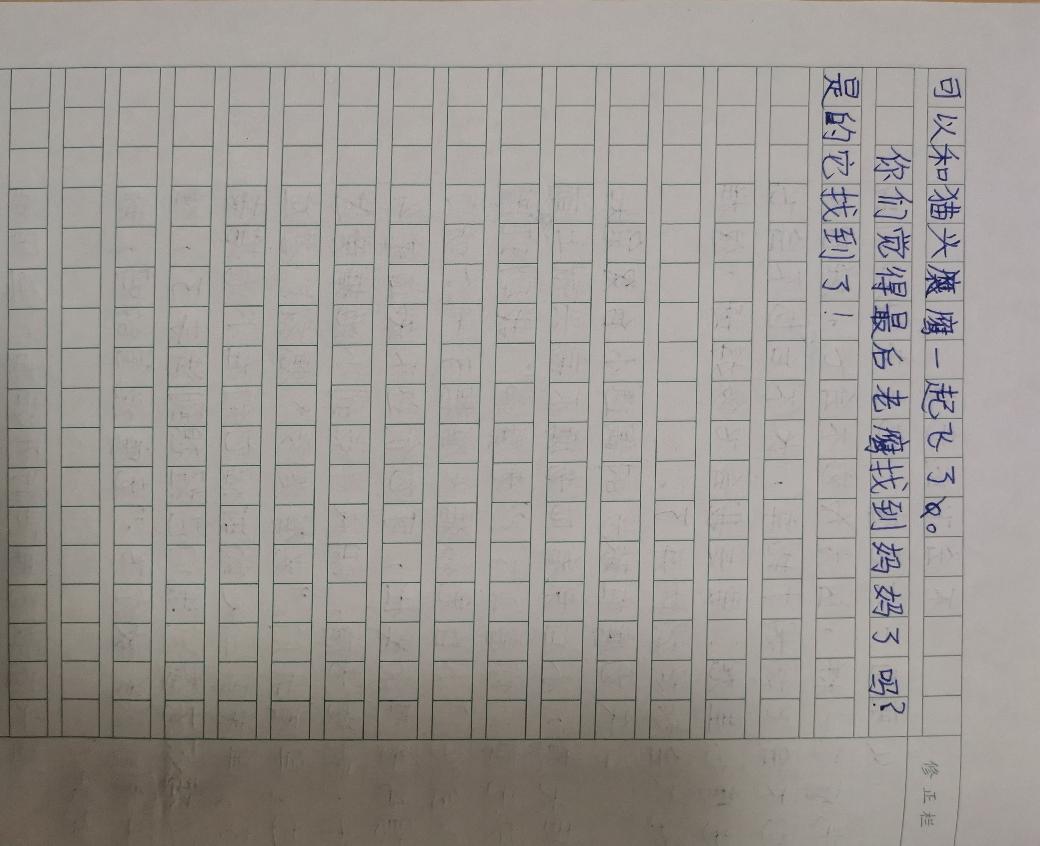 可以和猫头鹰鹰一起飞了。
你们觉得最后老鹰找到妈妈了吗?
是的它找到了!
修正栏